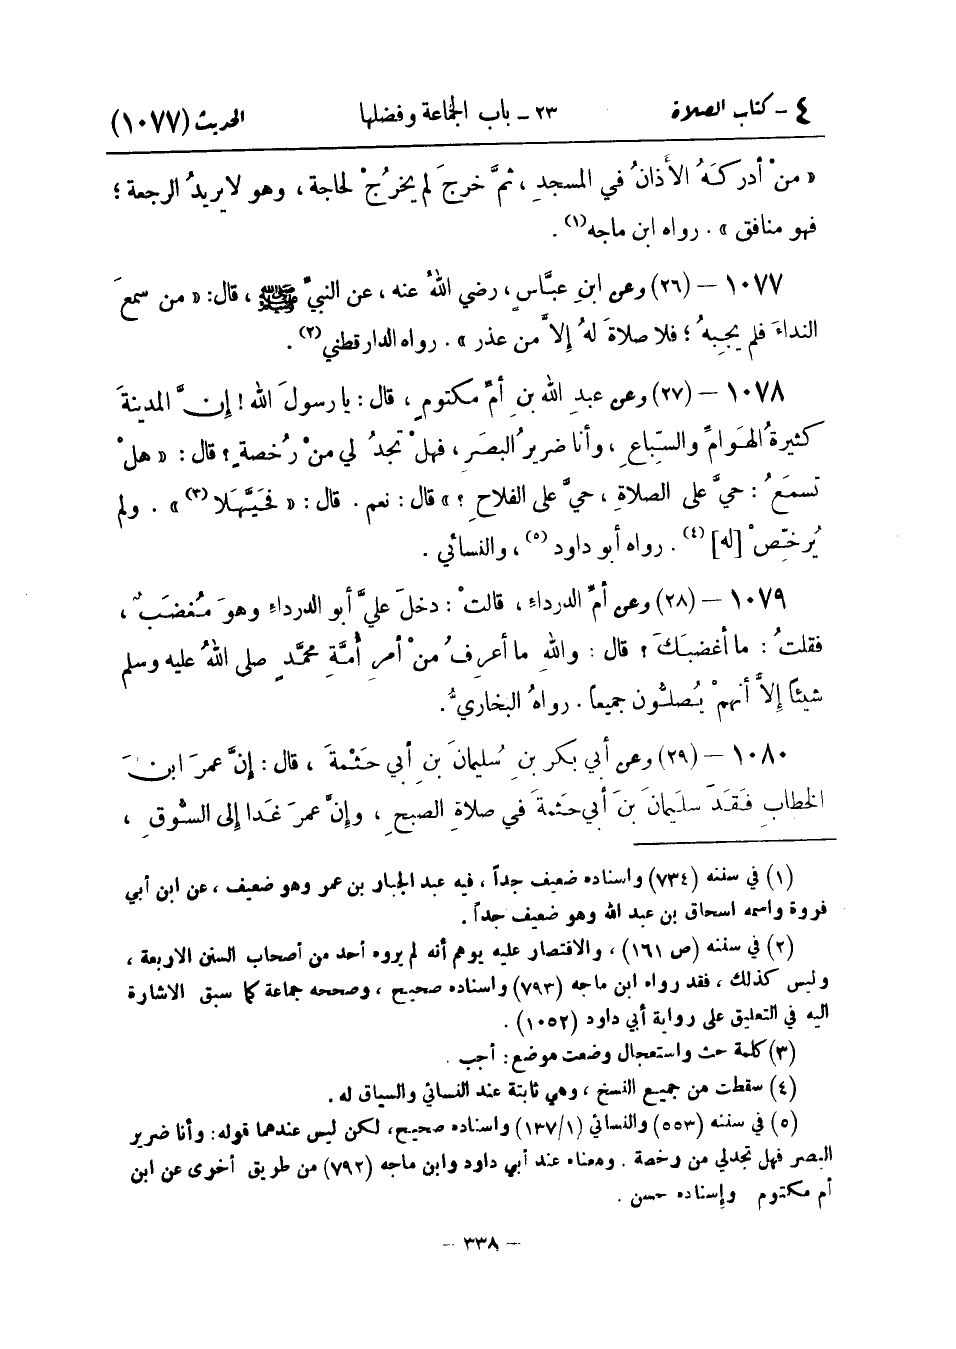 ٤ - كتاب الصلاة ٢٣ - باب الجماعة وفضلها الحديث (١٠٧٧)
« منْ أدركَهُ الأذانُ في المسجدِ ، ثمَّ خرجَ لم يخرُجْ لحاجة ، وهو لا يريدُ الرجعة ؛
فهو منافق » . رواه ابن ماجه(١) .
١٠٧٧ – (٢٦) وعن ابنِ عبَّاسٍ ، رضي اللهُ عنه ، عن النبيِّ ﷺ ، قال: « من سمعَ
النداءَ فلم يجبهُ ؛ فلا صلاةَ لهُ إلاَّ من عذر » . رواه الدارقطني(٢) .
١٠٧٨ – (٢٧) وعن عبدِ الله بنِ أمِّ مكتومٍ ، قال : يا رسولَ الله ! إنَّ المدينةَ
كثيرةُ الهَوامِّ والسِّباعِ ، وأنا ضريرُ البصَرِ ، فهلْ تجدُ لي منْ رُخصةٍ ؟ قال : « هلْ
تسمَعُ : حيَّ على الصلاةِ ، حيَّ على الفلاحِ ؟ » قال : نعم . قال : « فحَيَّهَلا (٣) » . ولم
يُرخّصْ [له] (٤) . رواه أبو داود (٥) ، والنسائي .
١٠٧٩ – (٢٨) وعن أمِّ الدرداءِ ، قالتْ : دخلَ عليَّ أبو الدرداءِ وهوَ مُغضَبٌ ،
فقلتُ : ما أغضبَكَ ؟ قال : واللهِ ما أعرِفُ منْ أمرِ أُمَّةِ محمَّدٍ صلى اللهُ عليه وسلم
شيئاً إلاَّ أنهمْ يُصلُّون جميعاً . رواهُ البخاريُّ .
١٠٨٠ – (٢٩) وعن أبي بكرِ بنِ سُليمانَ بنِ أبي حَثْمةَ ، قال : إنَّ عمرَ ابنَ
الخطابِ فَقَدَ سليمانَ بنَ أبي حَثمةَ في صلاةِ الصبحِ ، وإنَّ عمرَ غَدا إلى السُّوقِ ،
(١) في سننه (٧٣٤) واسناده ضعيف جداً ، فيه عبد الجبار بن عمر وهو ضعيف ، عن ابن أبي
فروة واسمه اسحاق بن عبد الله وهو ضعيف جداً .
(٢) في سننه (ص ١٦١) ، والاقتصار عليه يوهم أنه لم يروه أحد من أصحاب السنن الاربعة ،
وليس كذلك ، فقد رواه ابن ماجه (٧٩٣) واسناده صحيح ، وصححه جماعة كما سبق الاشارة
اليه في التعليق على رواية أبي داود (١٠٥٢) .
(٣) كلمة حث واستعجال وضعت موضع : أجب .
(٤) سقطت من جميع النسخ ، وهي ثابتة عند النسائي والسياق له .
(٥) في سننه (٥٥٣) والنسائي (١/١٣٧) واسناده صحيح، لكن ليس عندهما قوله: وأنا ضرير
البصر فهل تجدلي من رخصة . ومعناه عند أبي داود وابن ماجه (٧٩٢) من طريق أخرى عن ابن
أم مكتوم وإسناده حسن .
– ٣٣٨ –